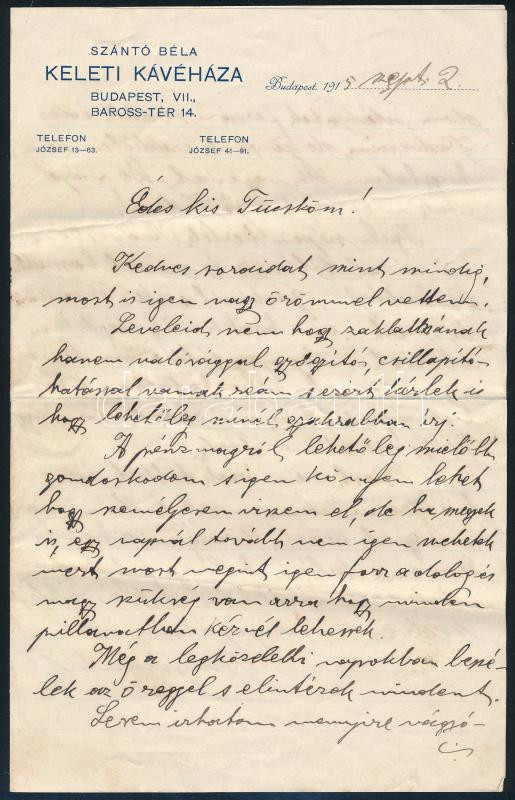 SZÁNTÓ BÉLA
KELETI KÁVÉHÁZA
BUDAPEST, VII.,
BAROSS-TÉR 14.
TELEFON
JÓZSEF 13—63.
TELEFON
JÓZSEF 41—91.
Budapest, 1915 szept. 2.
Édes kis Tücsköm!
Kedves soraidat mint mindig,
most is igen nagy örömmel vettem.
Leveleid nem hogy zaklatnának
hanem valósággal gyógyító, csillapító
hatással vannak reám s ezért kérlek is
hogy lehetőleg minel gyakrabban írj.
A pénzmagról lehetőleg mielőbb
gondoskodom s igen könnyen lehet
hogy személyesen viszem el, de ha megyek
is, egy napnál tovább nem igen mehetek
mert most megint igen forr a dolog és
nagy szükség van arra hogy minden
pillanatban kéznél lehessek.
Még a legközelebbi napokban beszé-
lek az öreggel s elintézek mindent.
Leven irhatom mennyire vágyó-